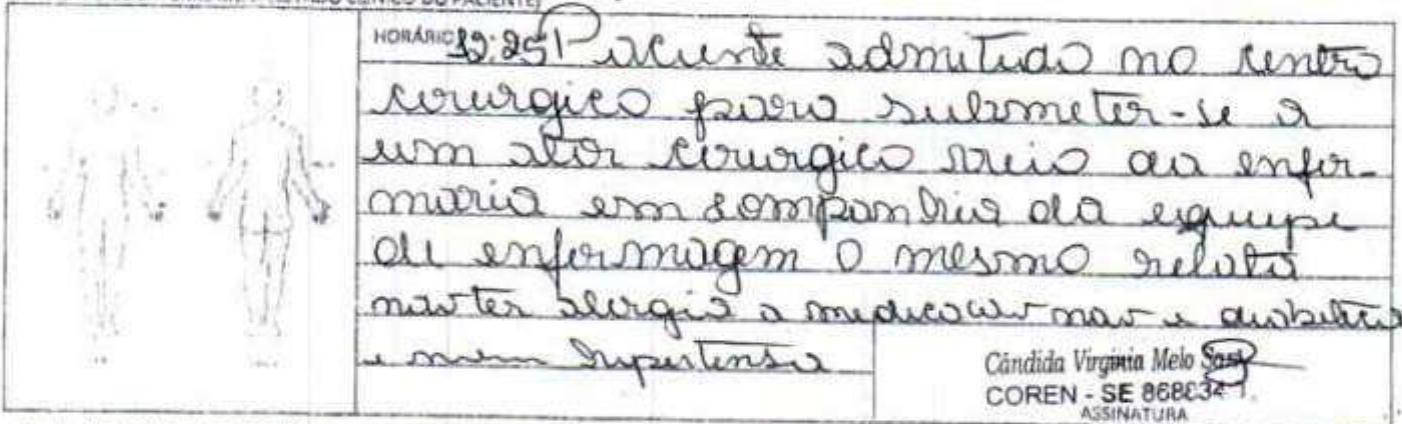 HORÁRIO 12:25 Paciente admitido no centro
cirurgico para submeter-se a
um ator cirurgico veio da enfer-
maria em companhia da equipe
de enfermagem O mesmo relata
não ter alergia a medicação não e diabetico
e nem hipertenso
Cândida Virginia Melo
COREN - SE
ASSINATURA